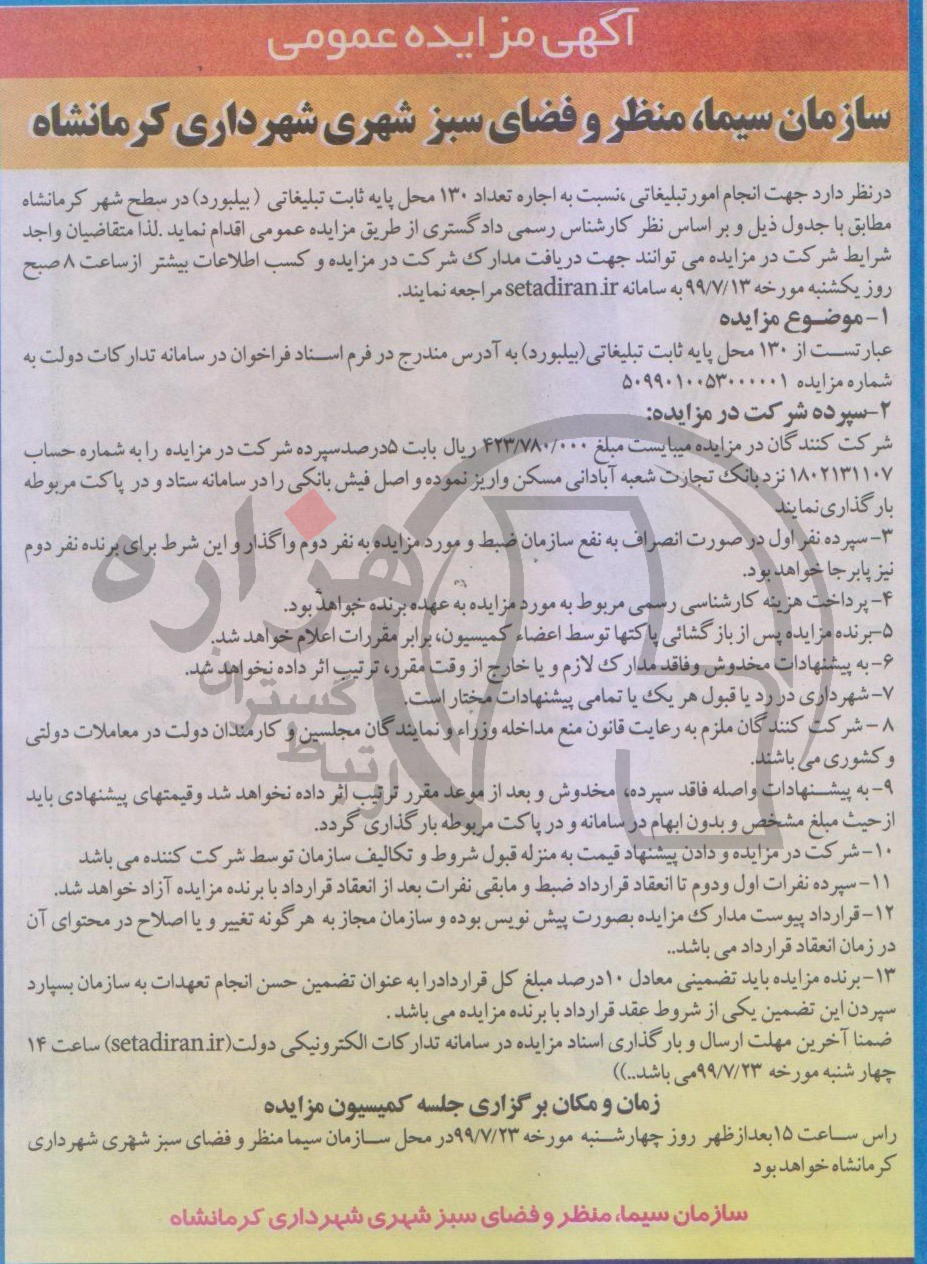 آگهی مزایده عمومی
سازمان سیما، منظر و فضای سبز شهری شهرداری کرمانشاه
درنظر دارد جهت انجام امورتبلیغاتی ،نسبت به اجاره تعداد ۱۳۰ محل پایه ثابت تبلیغاتی ( بیلبورد) در سطح شهر کرمانشاه
مطابق با جدول ذیل و بر اساس نظر کارشناس رسمی دادگستری از طریق مزایده عمومی اقدام نماید .لذا متقاضیان واجد
شرایط شرکت در مزایده می توانند جهت دریافت مدارک شرکت در مزایده و کسب اطلاعات بیشتر ازساعت ۸ صبح
روز یکشنبه مورخه ۹۹/۷/۱۳ به سامانه setadiran.ir مراجعه نمایند.
۱- موضوع مزایده
عبارتست از ۱۳۰ محل پایه ثابت تبلیغاتی(بیلبورد) به آدرس مندرج در فرم اسناد فراخوان در سامانه تدارکات دولت به
شماره مزایده ۵۰۹۹۰۱۰۰۵۳۰۰۰۰۰۱
۲-سپرده شرکت در مزایده:
شرکت کنندگان در مزایده میبایست مبلغ ۴۲۳/۷۸۰/۰۰۰ ریال بابت ۵درصدسپرده شرکت در مزایده را به شماره حساب
۱۸۰۲۱۳۱۱۰۷ نزد بانک تجارت شعبه آبادانی مسکن واریز نموده و اصل فیش بانکی را در سامانه ستاد و در پاکت مربوطه
بارگذاری نمایند
۳- سپرده نفر اول در صورت انصراف به نفع سازمان ضبط و مورد مزایده به نفر دوم واگذار و این شرط برای برنده نفر دوم
نیز پابرجا خواهد بود.
۴- پرداخت هزینه کارشناسی رسمی مربوط به مورد مزایده به عهده برنده خواهد بود.
۵-برنده مزایده پس از باز گشائی پاکتها توسط اعضاء کمیسیون، برابر مقررات اعلام خواهد شد.
۶- به پیشنهادات مخدوش وفاقد مدارک لازم و یا خارج از وقت مقرر، ترتیب اثر داده نخواهد شد.
۷- شهرداری در رد یا قبول هر یک یا تمامی پیشنهادات مختار است.
۸ - شرکت کنندگان ملزم به رعایت قانون منع مداخله وزراء و نمایندگان مجلسین و کارمندان دولت در معاملات دولتی
و کشوری می باشند.
۹- به پیشنهادات واصله فاقد سپرده، مخدوش و بعد از موعد مقرر ترتیب اثر داده نخواهد شد وقیمتهای پیشنهادی باید
از حیث مبلغ مشخص و بدون ابهام در سامانه و در پاکت مربوطه بارگذاری گردد.
۱۰- شرکت در مزایده و دادن پیشنهاد قیمت به منزله قبول شروط و تکالیف سازمان توسط شرکت کننده می باشد
۱۱- سپرده نفرات اول ودوم تا انعقاد قرارداد ضبط و مابقی نفرات بعد از انعقاد قرارداد با برنده مزایده آزاد خواهد شد.
۱۲- قرارداد پیوست مدارک مزایده بصورت پیش نویس بوده و سازمان مجاز به هرگونه تغییر و یا اصلاح در محتوای آن
در زمان انعقاد قرارداد می باشد..
۱۳- برنده مزایده باید تضمینی معادل ۱۰درصد مبلغ کل قراردادرا به عنوان تضمین حسن انجام تعهدات به سازمان بسپارد
سپردن این تضمین یکی از شروط عقد قرارداد با برنده مزایده می باشد .
ضمنا آخرین مهلت ارسال و بارگذاری اسناد مزایده در سامانه تدارکات الکترونیکی دولت(setadiran.ir) ساعت ۱۴
چهار شنبه مورخه ۹۹/۷/۲۳می باشد..))
زمان و مکان برگزاری جلسه کمیسیون مزایده
راس ساعت ۱۵بعدازظهر روز چهارشنبه مورخه ۹۹/۷/۲۳در محل سازمان سیما منظر و فضای سبز شهری شهرداری
کرمانشاه خواهد بود
سازمان سیما، منظر و فضای سبز شهری شهرداری کرمانشاه
هزاره
گستران
ارتباط